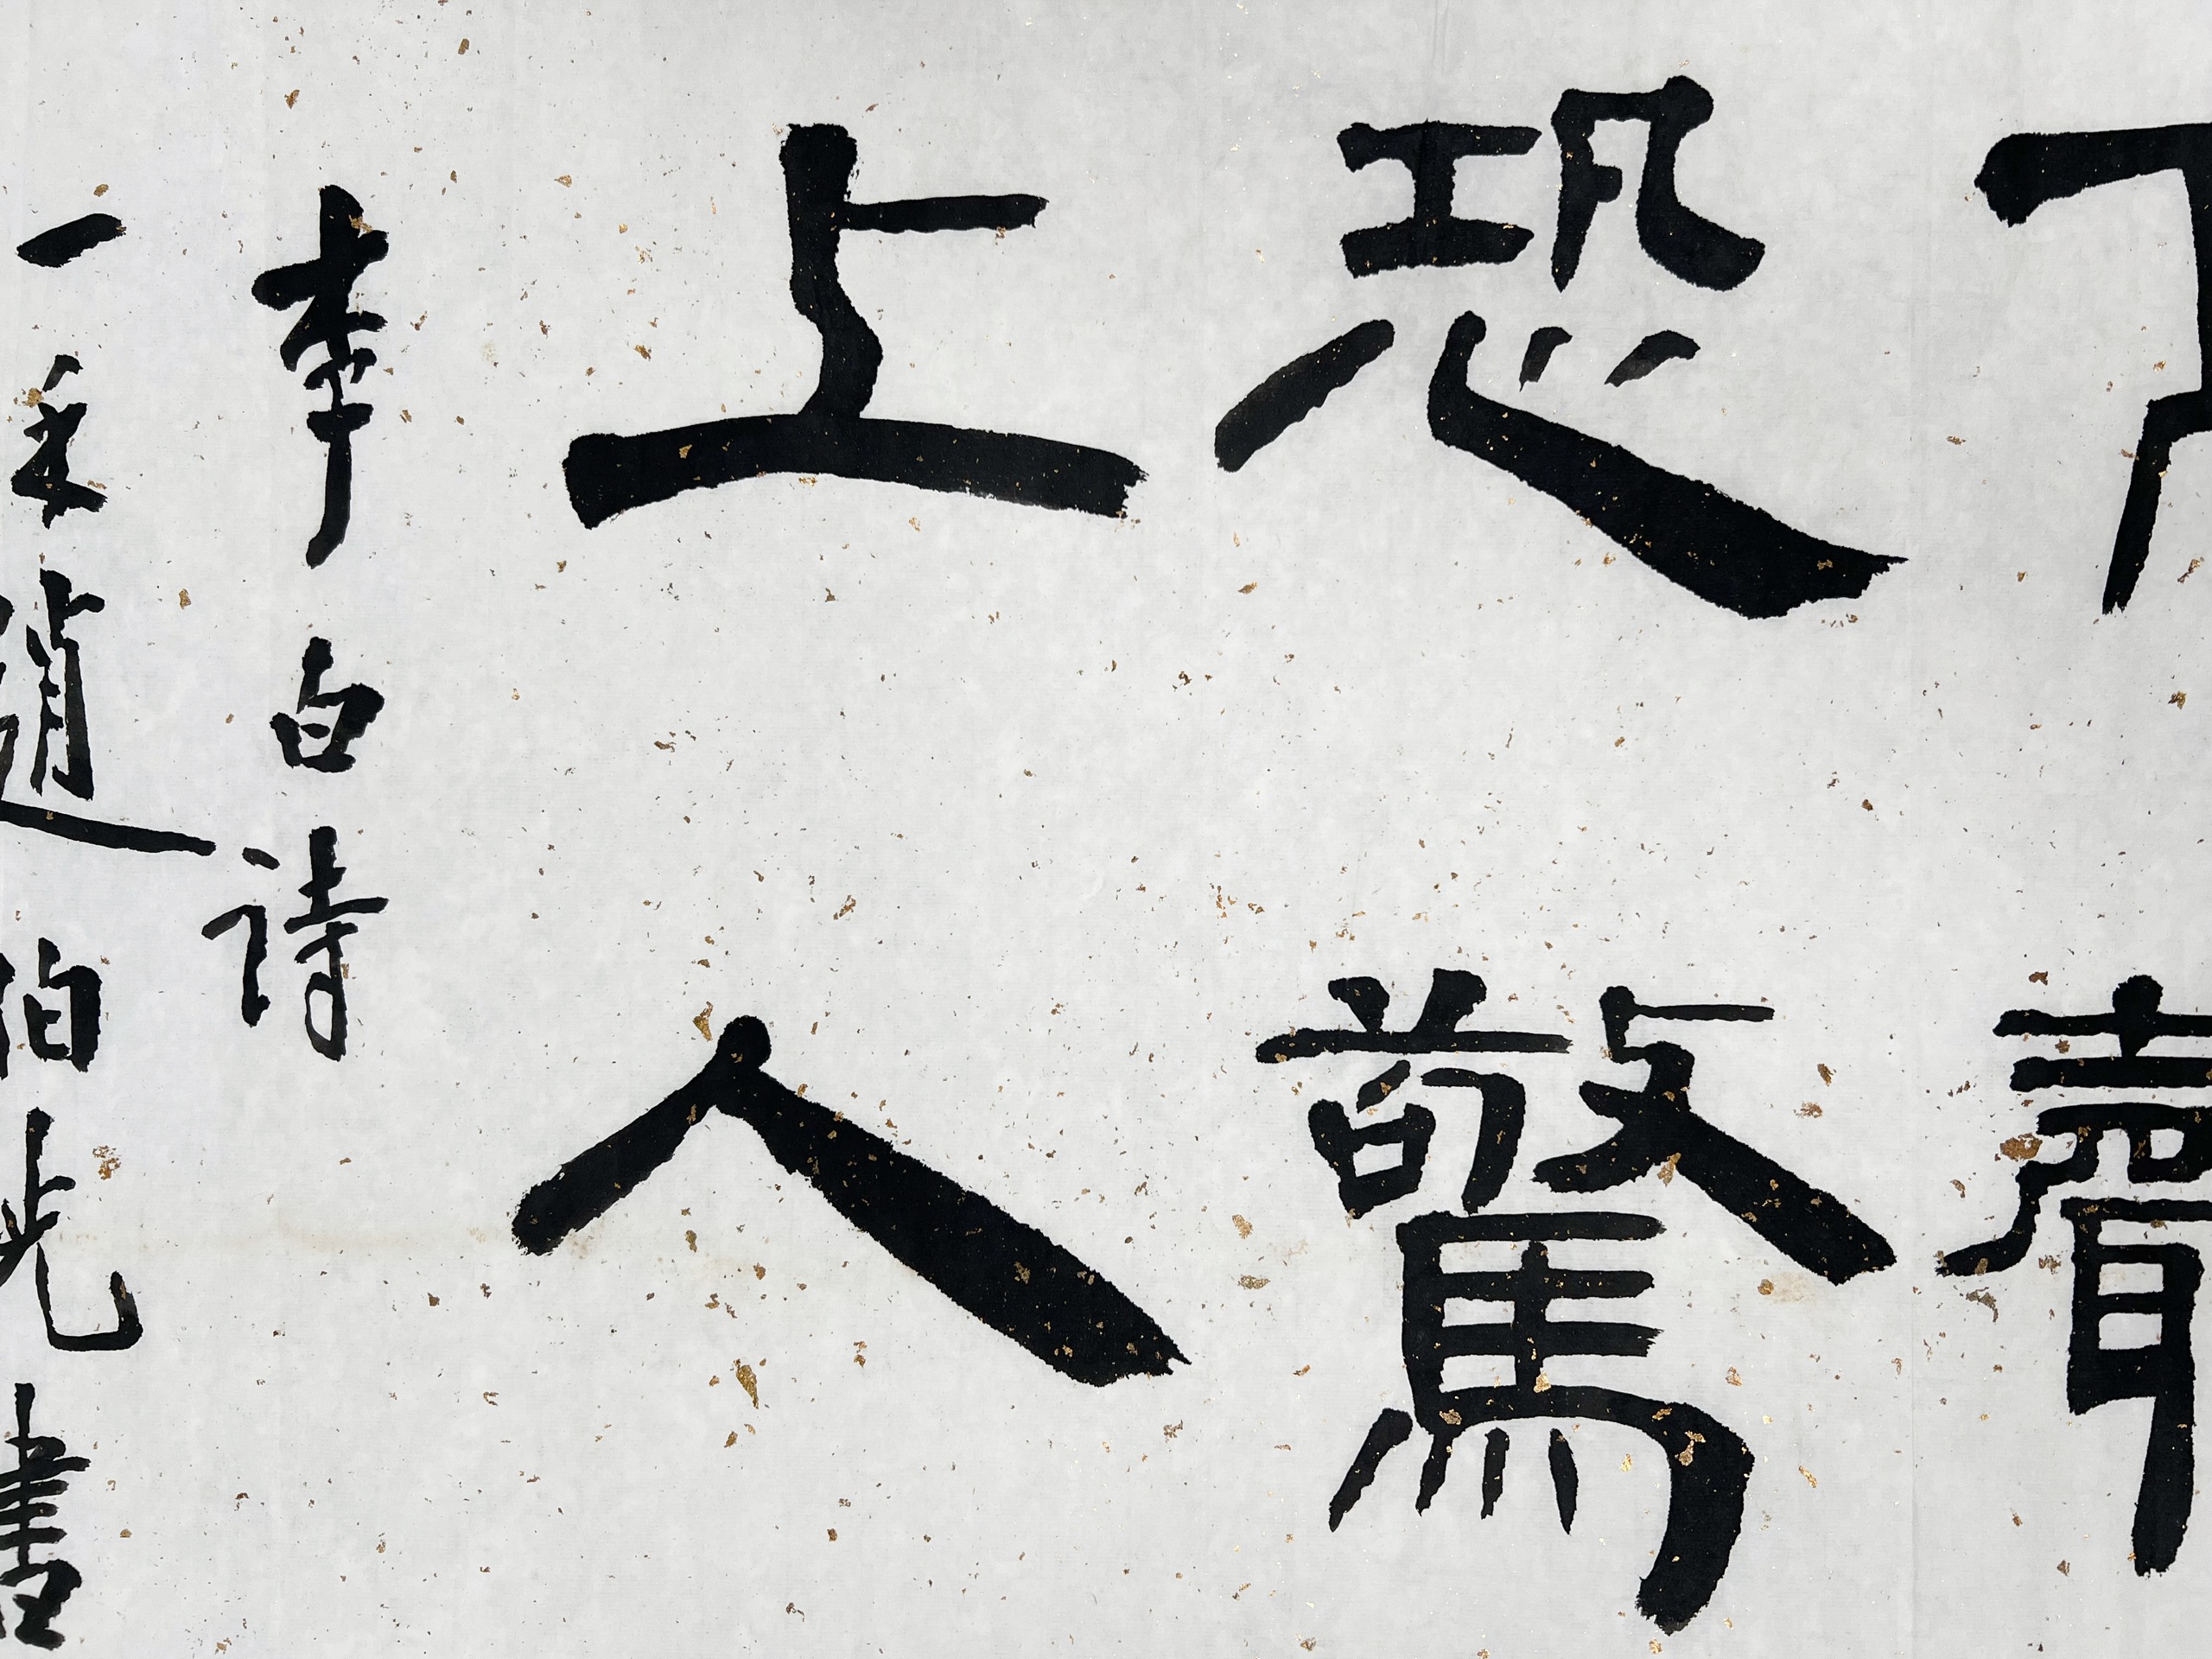 聲
恐驚
上人
李白詩
一 趙伯光書